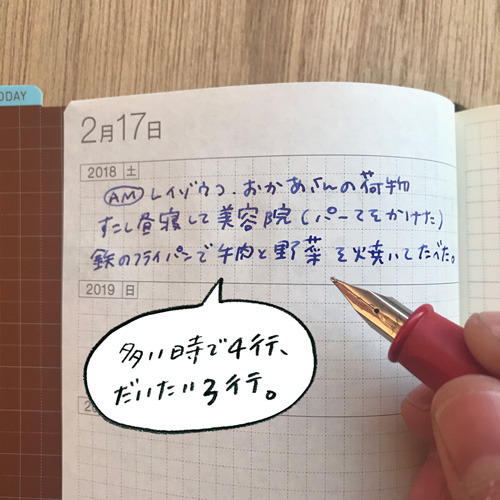 ODAY
2月17日
2018 土
AM レイゾウコ、おかあさんの荷物
すこし昼寝して美容院(パーマをかけた)
鉄のフライパンで牛肉と野菜を焼いてたべた。
2019 日
多い時で4行、
だいたい3行。
20